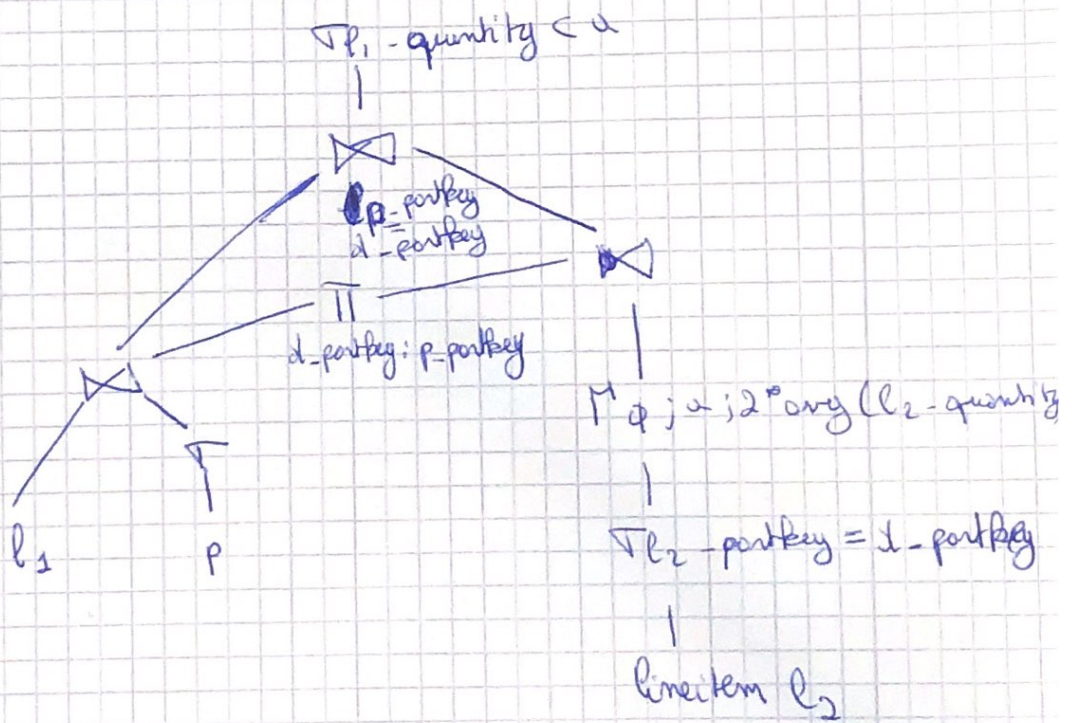 σl₁-quantity < α
⋈
p-partkey
=
d-partkey
⋈
π
d-partkey: p-partkey
⋈
Γ ϕ; α; 2*avg(l₂-quantity
σ
σl₂-partkey = d-partkey
l₁
p
lineitem l₂